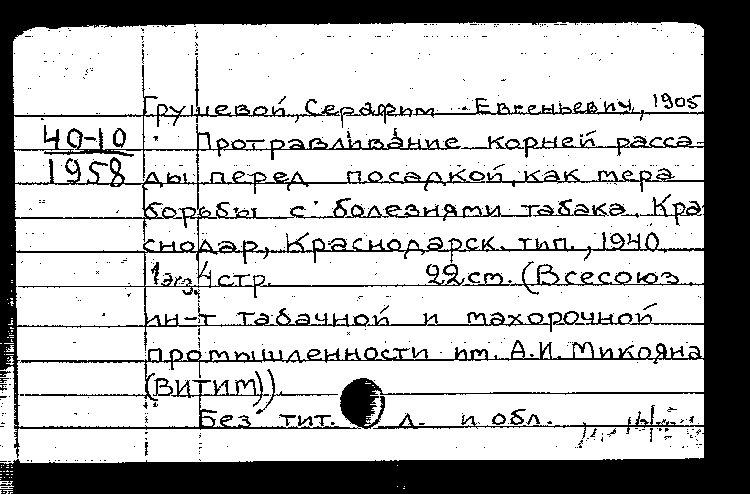 Грушевой, Серафим Евгеньевич, 1905
40-10
1958
Протравливание корней расса-
ды перед посадкой, как мера
борьбы с болезнями табака. Кра
снодар, Краснодарск. тип., 1940.
1 экз. 4 стр. 22 см. (Всесоюз.
ин-т табачной и махорочной
промышленности им. А.И. Микояна
(ВИТИМ)).
Без тит. л. и обл.